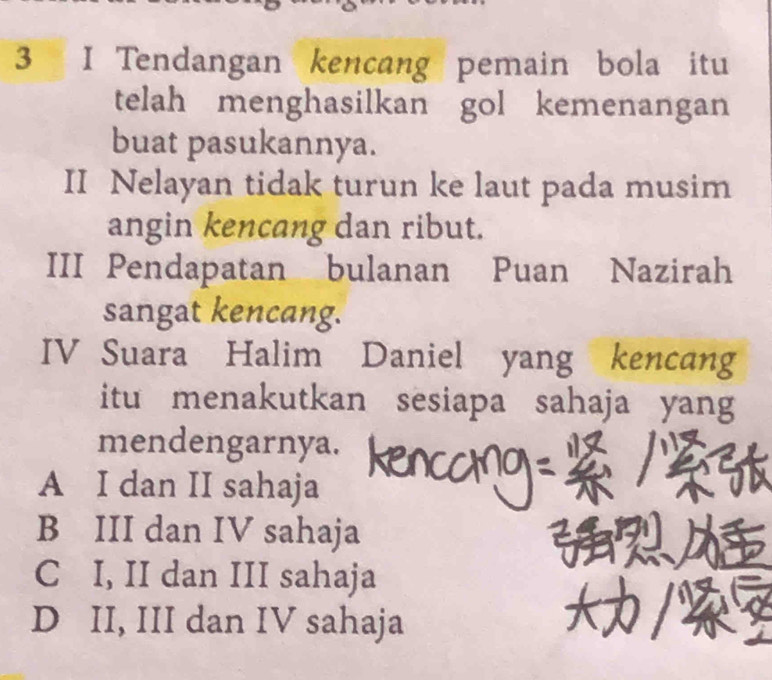 3 I Tendangan kencang pemain bola itu
telah menghasilkan gol kemenangan
buat pasukannya.
II Nelayan tidak turun ke laut pada musim
angin kencang dan ribut.
III Pendapatan bulanan Puan Nazirah
sangat kencang.
IV Suara Halim Daniel yang kencang
itu menakutkan sesiapa sahaja yang
mendengarnya.
kencang = 紧 / 紧张
A I dan II sahaja
B III dan IV sahaja
强烈 / 凶猛
C I, II dan III sahaja
大力 / 紧密
D II, III dan IV sahaja